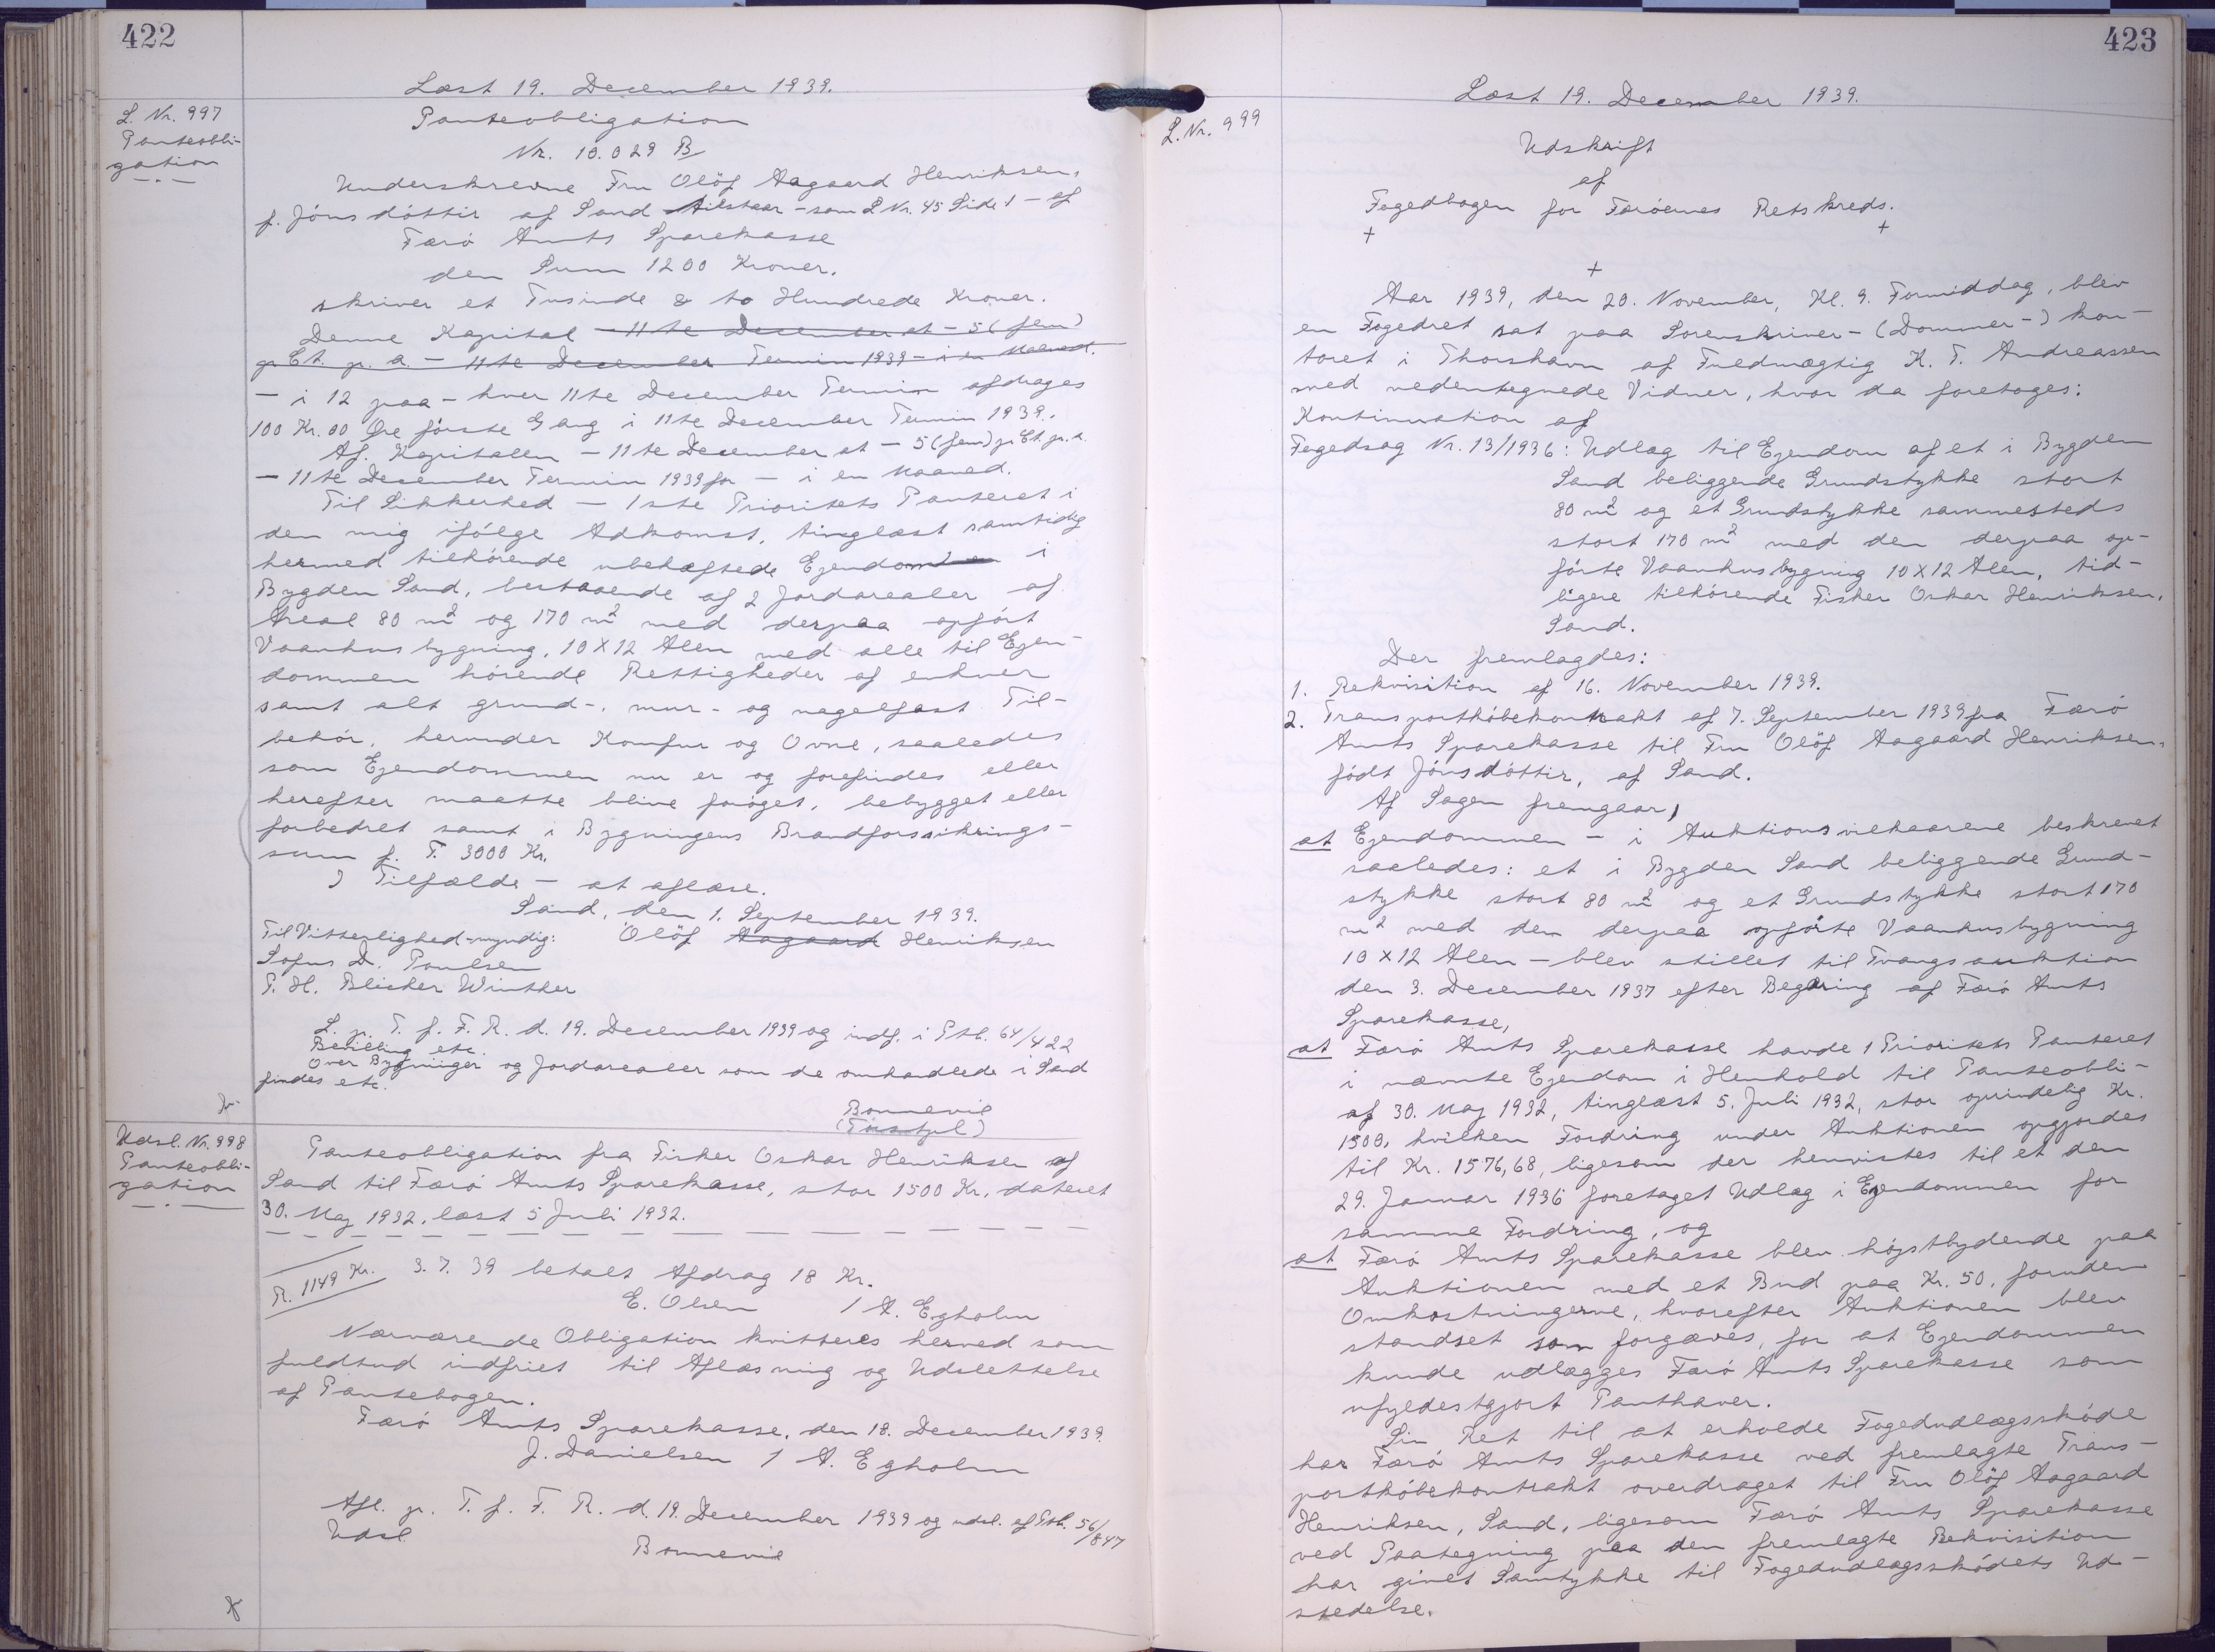 422
Læst 19. December 1939.
L. Nr. 997
Panteobli-
gation
Panteobligation
Nr. 10.029 B
Underskrevne Fru Olöf Aagaard Henriksen,
f. Jónsdóttir af Sand tilstaar - som L Nr. 45 Side 1 - af
Færö Amts Sparekasse
den Sum 1200 Kroner.
skriver et Tusinde & to Hundrede Kroner.
Denne Kapital - 11te December at - 5 (fem)
pr Ct. pr. a. - 11te December Termin 1939 - i en Maaned.
- i 12 paa - hver 11te December Termin afdrages
100 Kr. 00 Øre første Gang i 11te December Termin 1939.
Af Kapitalen - 11te December at - 5 (fem) pr Ct. pr. a.
- 11te December Termin 1939 fr - i en Maaned.
Til Sikkerhed - 1ste Prioritets Panteret i
den mig ifölge Adkomst, tinglæst samtidig
hermed tilhörende ubehæftede Ejendommen i
Bygden Sand, bestaaende af 2 Jordarealer af
Areal 80 m² og 170 m² med derpaa opfört
Vaanhusbygning, 10 X 12 Alen med alle til Ejen-
dommen hörende Rettigheder af enhver
samt alt grund-, mur- og nagelfast Til-
behör, herunder Komfur og Ovne, saaledes
som Ejendommen nu er og forefindes eller
herefter maatte blive foröget, bebygget eller
forbedret samt i Bygningens Brandforsikrings-
sum p. T. 3000 Kr.
I Tilfælde - at aflæse.
Sand, den 1. September 1939.
Til Vitterlighed - myndig: Olöf Aagaard Henriksen
Sofus D. Poulsen
P. H. Blicher Winther
L. p. T. f. F. R. d. 19. December 1939 og indf. i Ptb. 64/422
Bevilling etc.
Over Bygninger og Jordarealer som de omhandlede i Sand
findes etc.
Bonnevie
Udsl. Nr. 998
Panteobli-
gation
Panteobligation fra Fisker Oskar Henriksen af
Sand til Færö Amts Sparekasse, stor 1500 Kr, dateret
30. Maj 1932, læst 5 Juli 1932.
R. 1149 Kr. 3. 7. 39 betalt Afdrag 18 Kr.
E. Olsen / A. Egholm
Nærværende Obligation kvitteres herved som
fuldtud indfriet til Aflæsning og Udslettelse
af Pantebogen.
Færö Amts Sparekasse, den 18. December 1939.
J. Danielsen / A. Egholm
Afl. p. T. f. F. R. d. 19. December 1939 og udsl. af Ptb. 56/847
Udsl.
Bonnevie
423
Læst 19. December 1939.
L. Nr. 999
Udskrift
af
Fogedbogen for Færöernes Retskreds.
+ +
+
Aar 1939, den 20. November, Kl. 9. Formiddag, blev
en Fogedret sat paa Sorenskriver- (Dommer-) kon-
toret i Thorshavn af Fuldmægtig K. T. Andreassen
med nedentegnede Vidner, hvor da foretoges:
Kontinuation af
Fogedsag Nr. 13/1936: Udlæg til Ejendom af et i Bygden
Sand beliggende Grundstykke stort
80 m² og et Grundstykke sammesteds
stort 170 m² med den derpaa op-
förte Vaanhusbygning 10 X 12 Alen, tid-
ligere tilhörende Fisker Oskar Henriksen,
Sand.
Der fremlagdes:
1. Rekvisition af 16. November 1939.
2. Transportköbekontrakt af 7. September 1939 fra Færö
Amts Sparekasse til Fru Olöf Aagaard Henriksen,
födt Jónsdóttir, af Sand.
Af Sagen fremgaar,
at Ejendommen - i Auktionsvilkaarene beskrevet
saaledes: et i Bygden Sand beliggende Grund-
stykke stort 80 m² og et Grundstykke stort 170
m² med den derpaa opförte Vaanhusbygning
10 X 12 Alen - blev stillet til Tvangsauktion
den 3. December 1937 efter Begæring af Færö Amts
Sparekasse,
at Færö Amts Sparekasse havde 1 Prioritets Panteret
i nævnte Ejendom i Henhold til Panteobli-
af 30. Maj 1932, tinglæst 5. Juli 1932, stor oprindelig Kr.
1500, hvilken Fordring under Auktionen opgjordes
til Kr. 1576,68, ligesom der henvistes til et den
29. Januar 1936 foretaget Udlæg i Ejendommen for
samme Fordring, og
at Færö Amts Sparekasse blev højstbydende paa
Auktionen med et Bud paa Kr. 50, foruden
Omkostningerne, hvorefter Auktionen blev
standset som forgæves, for at Ejendommen
kunde udlægges Færö Amts Sparekasse som
ufyldestgjort Panthaver.
Sin Ret til at erholde Fogedudlægsskøde
har Færö Amts Sparekasse ved fremlagte Trans-
portköbekontrakt overdraget til Fru Olöf Aagaard
Henriksen, Sand, ligesom Færö Amts Sparekasse
ved Paategning paa den fremlagte Rekvisition
har givet Samtykke til Fogedudlægsskødets Ud-
stedelse.